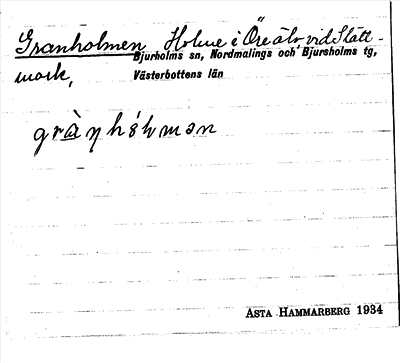 Granholmen Holme i Öre älv vid Slätt-
Bjurholms sn, Nordmalings och Bjursholms tg,
mark,
Västerbottens län
grànhólmən
ASTA HAMMARBERG 1934